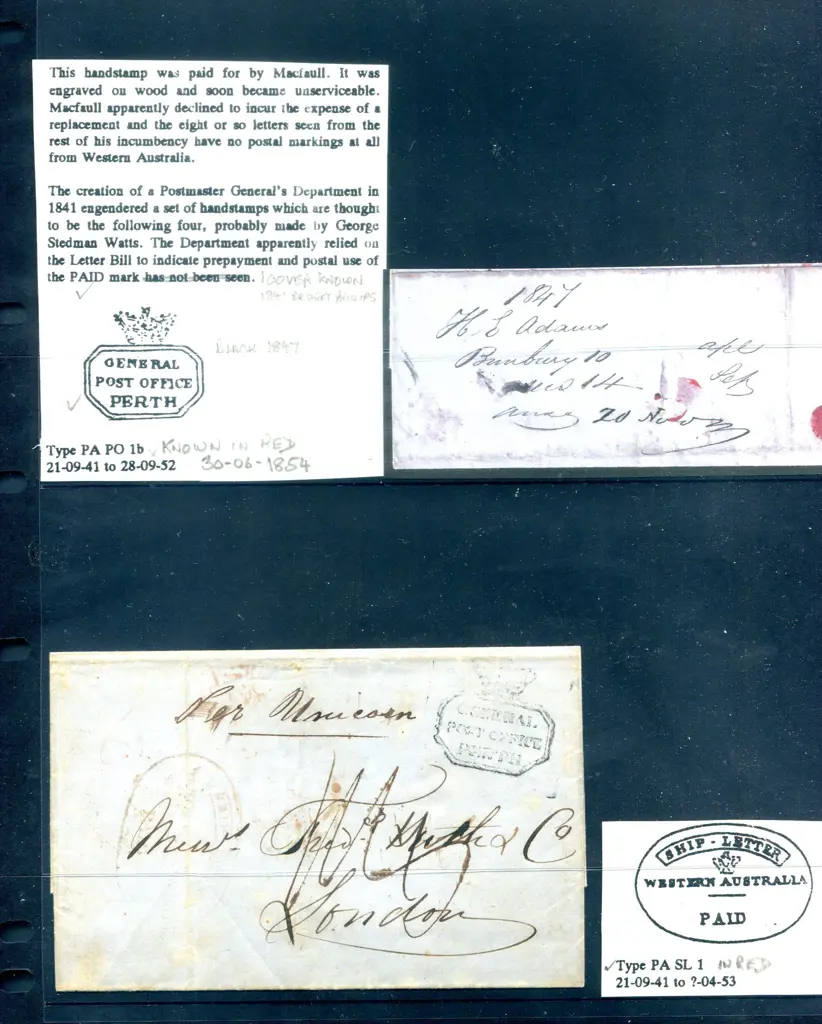 This handstamp was paid for by Macfaull. It was
engraved on wood and soon became unserviceable.
Macfaull apparently declined to incur the expense of a
replacement and the eight or so letters seen from the
rest of his incumbency have no postal markings at all
from Western Australia.
The creation of a Postmaster General's Department in
1841 engendered a set of handstamps which are thought
to be the following four, probably made by George
Stedman Watts. The Department apparently relied on
the Letter Bill to indicate prepayment and postal use of
the PAID mark has not been seen. 1 COVER KNOWN
1841
GENERAL
POST OFFICE
PERTH
BLACK 1847
Type PA PO 1b KNOWN IN RED
21-09-41 to 28-09-52 30-06-1854
1847
H L Adams
Bunbury 10
14
20 Nov
Per Unicorn
GENERAL
POST OFFICE
PERTH
Messrs Fredk Huth & Co
London
SHIP-LETTER
WESTERN AUSTRALIA
PAID
Type PA SL 1 IN RED
21-09-41 to ?-04-53